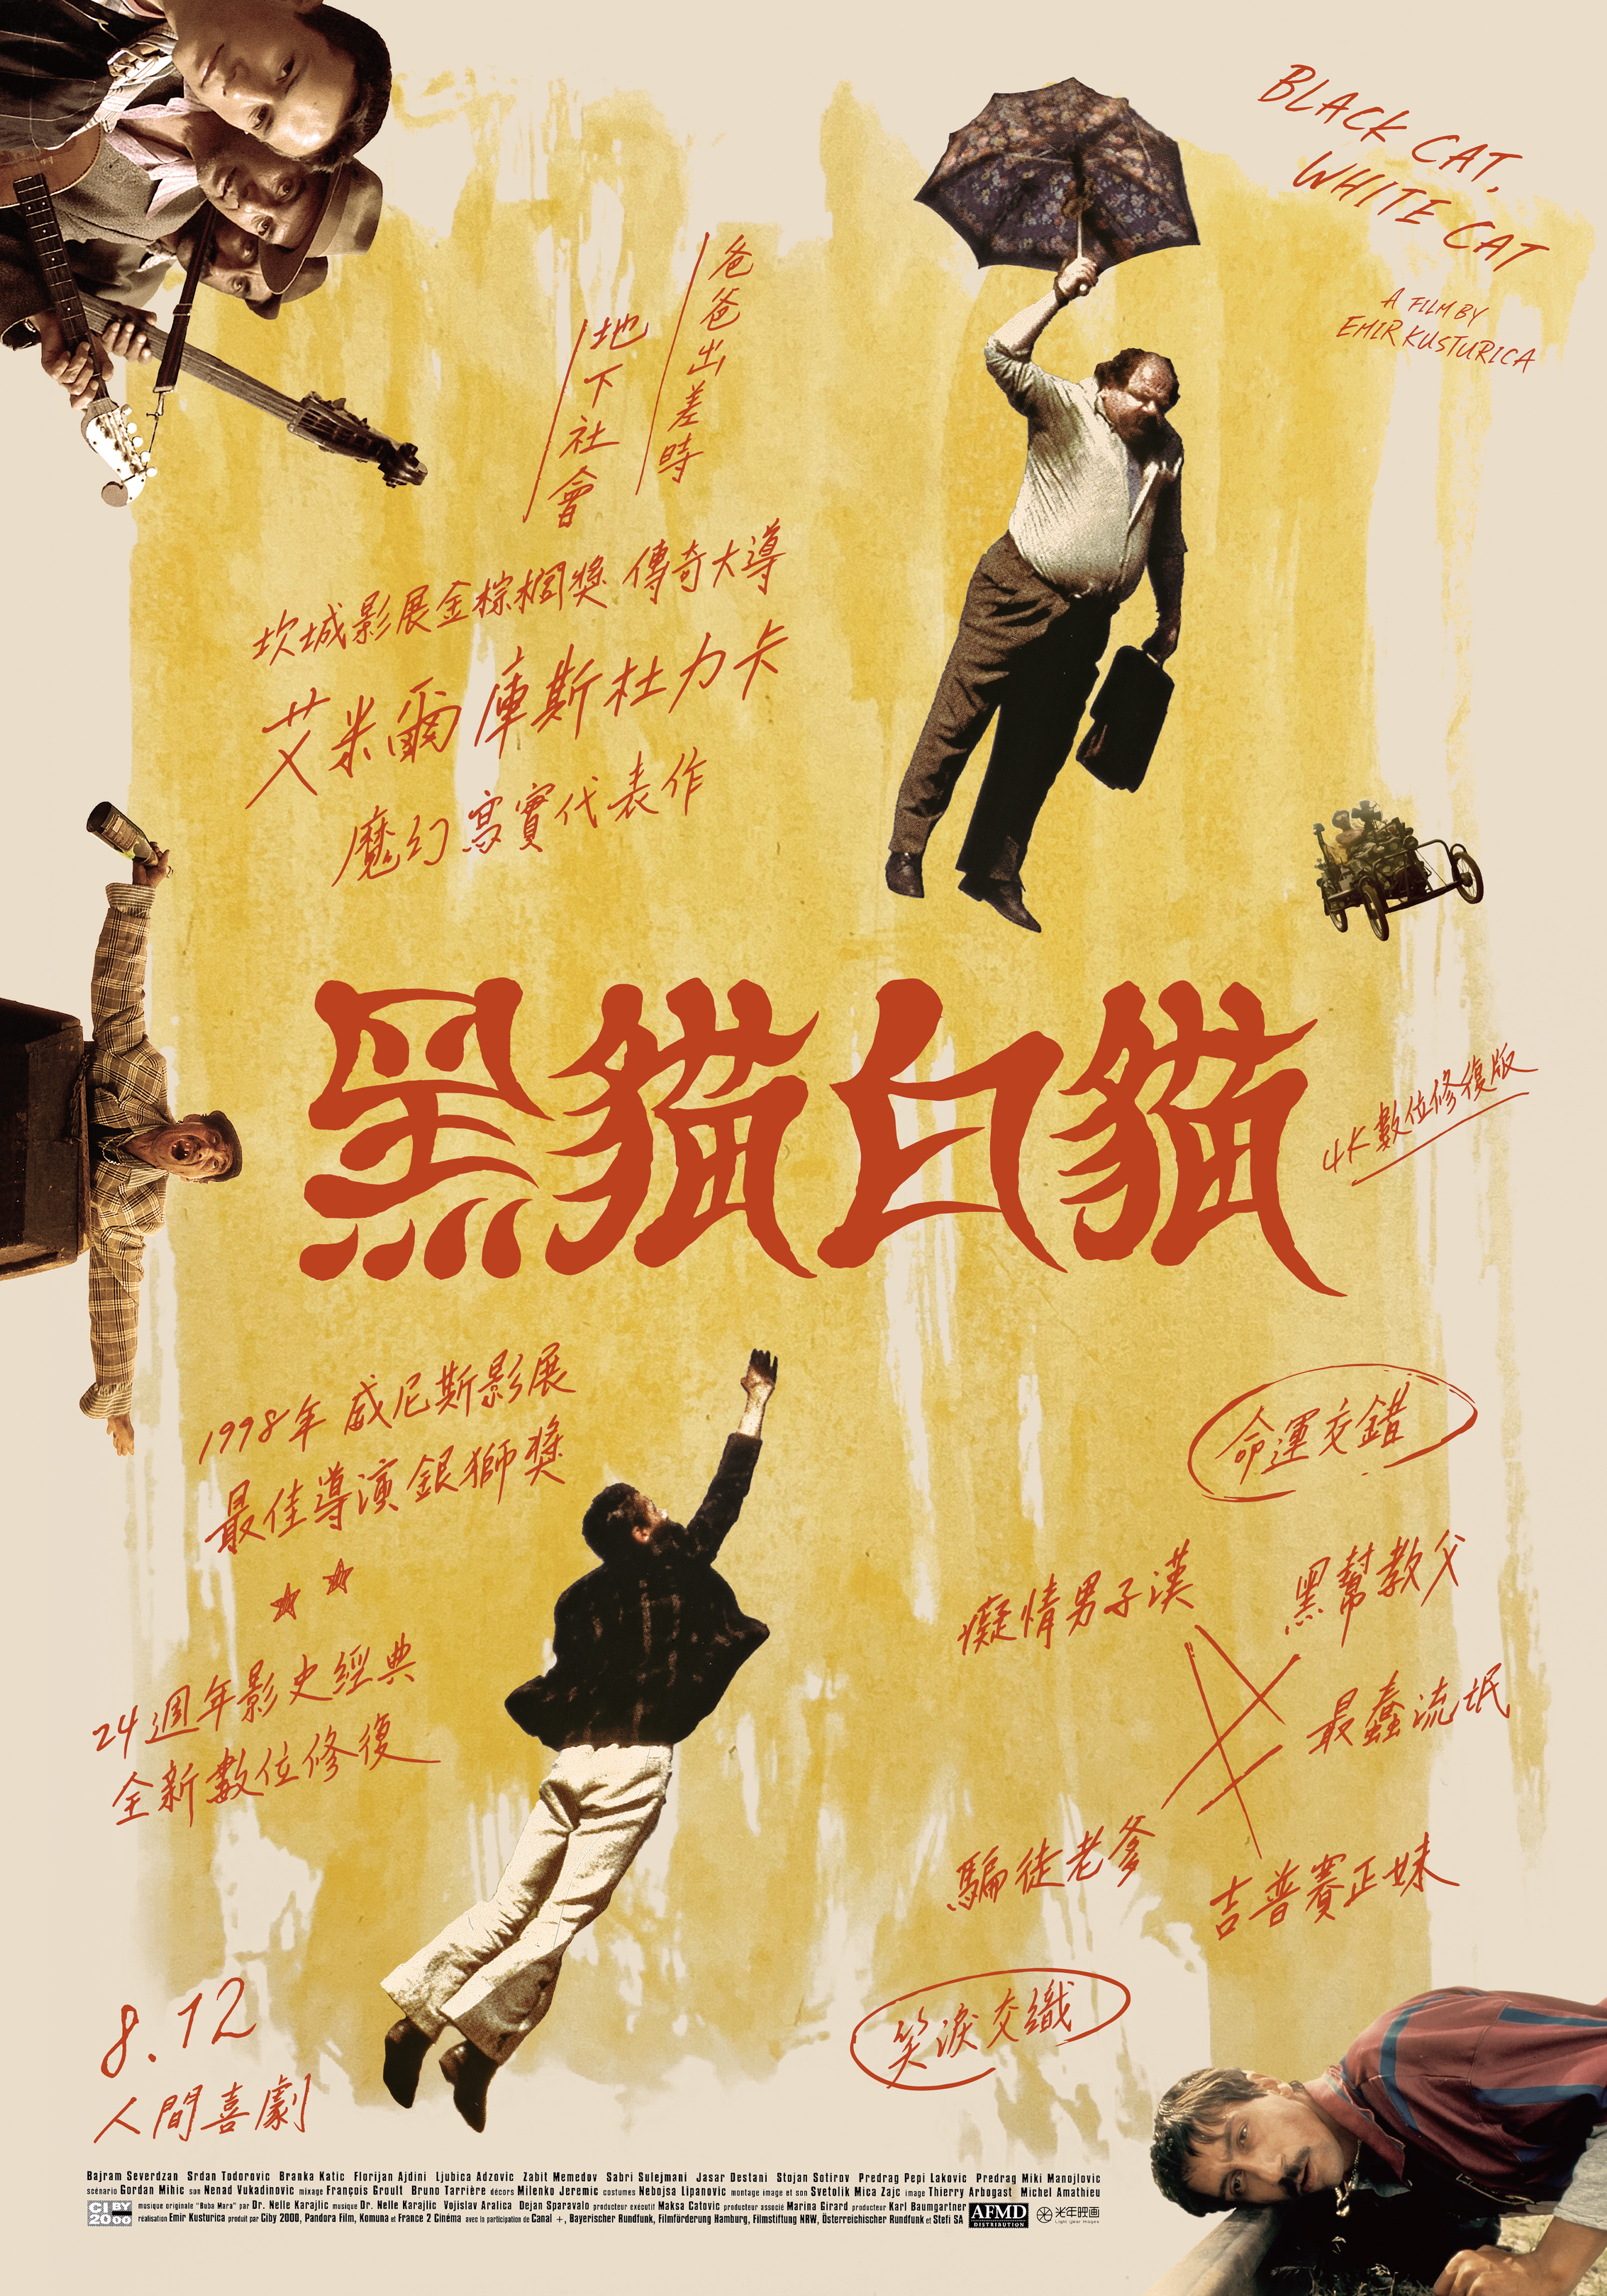 BLACK CAT,
WHITE CAT
A FILM BY
EMIR KUSTURICA
爸爸出差時
地下社會
坎城影展金棕櫚獎 傳奇大導
艾米爾 庫斯杜力卡
魔幻寫實代表作
黑貓白貓
4K 數位修復版
1998年 威尼斯影展
最佳導演銀獅獎
24週年影史經典
全新數位修復
命運交錯
癡情男子漢
黑幫教父
最蠢流氓
騙徒老爹
吉普賽正妹
笑淚交織
8.12
人間喜劇
Bajram Severdzan Srdan Todorovic Branka Katic Florijan Ajdini Ljubica Adzovic Zabit Memedov Sabri Sulejmani Jasar Destani Stojan Sotirov Predrag Pepi Lakovic Predrag Miki Manojlovic
scénario Gordan Mihic son Nenad Vukadinovic mixage François Groult Bruno Tarrière décors Milenko Jeremic costumes Nebojsa Lipanovic montage image et son Svetolik Mica Zajc image Thierry Arbogast Michel Amathieu
CI BY 2000
musique originale "Buba Mara" par Dr. Nelle Karajlic musique Dr. Nelle Karajlic Vojislav Aralica Dejan Sparavalo producteur exécutif Maksa Catovic producteur associé Marina Girard producteur Karl Baumgartner
réalisation Emir Kusturica produit par Ciby 2000, Pandora Film, Komuna et France 2 Cinéma avec la participation de Canal +, Bayerischer Rundfunk, Filmförderung Hamburg, Filmstiftung NRW, Österreichischer Rundfunk et Stefi SA
AFMD
DISTRIBUTION
光年映画
Light year images